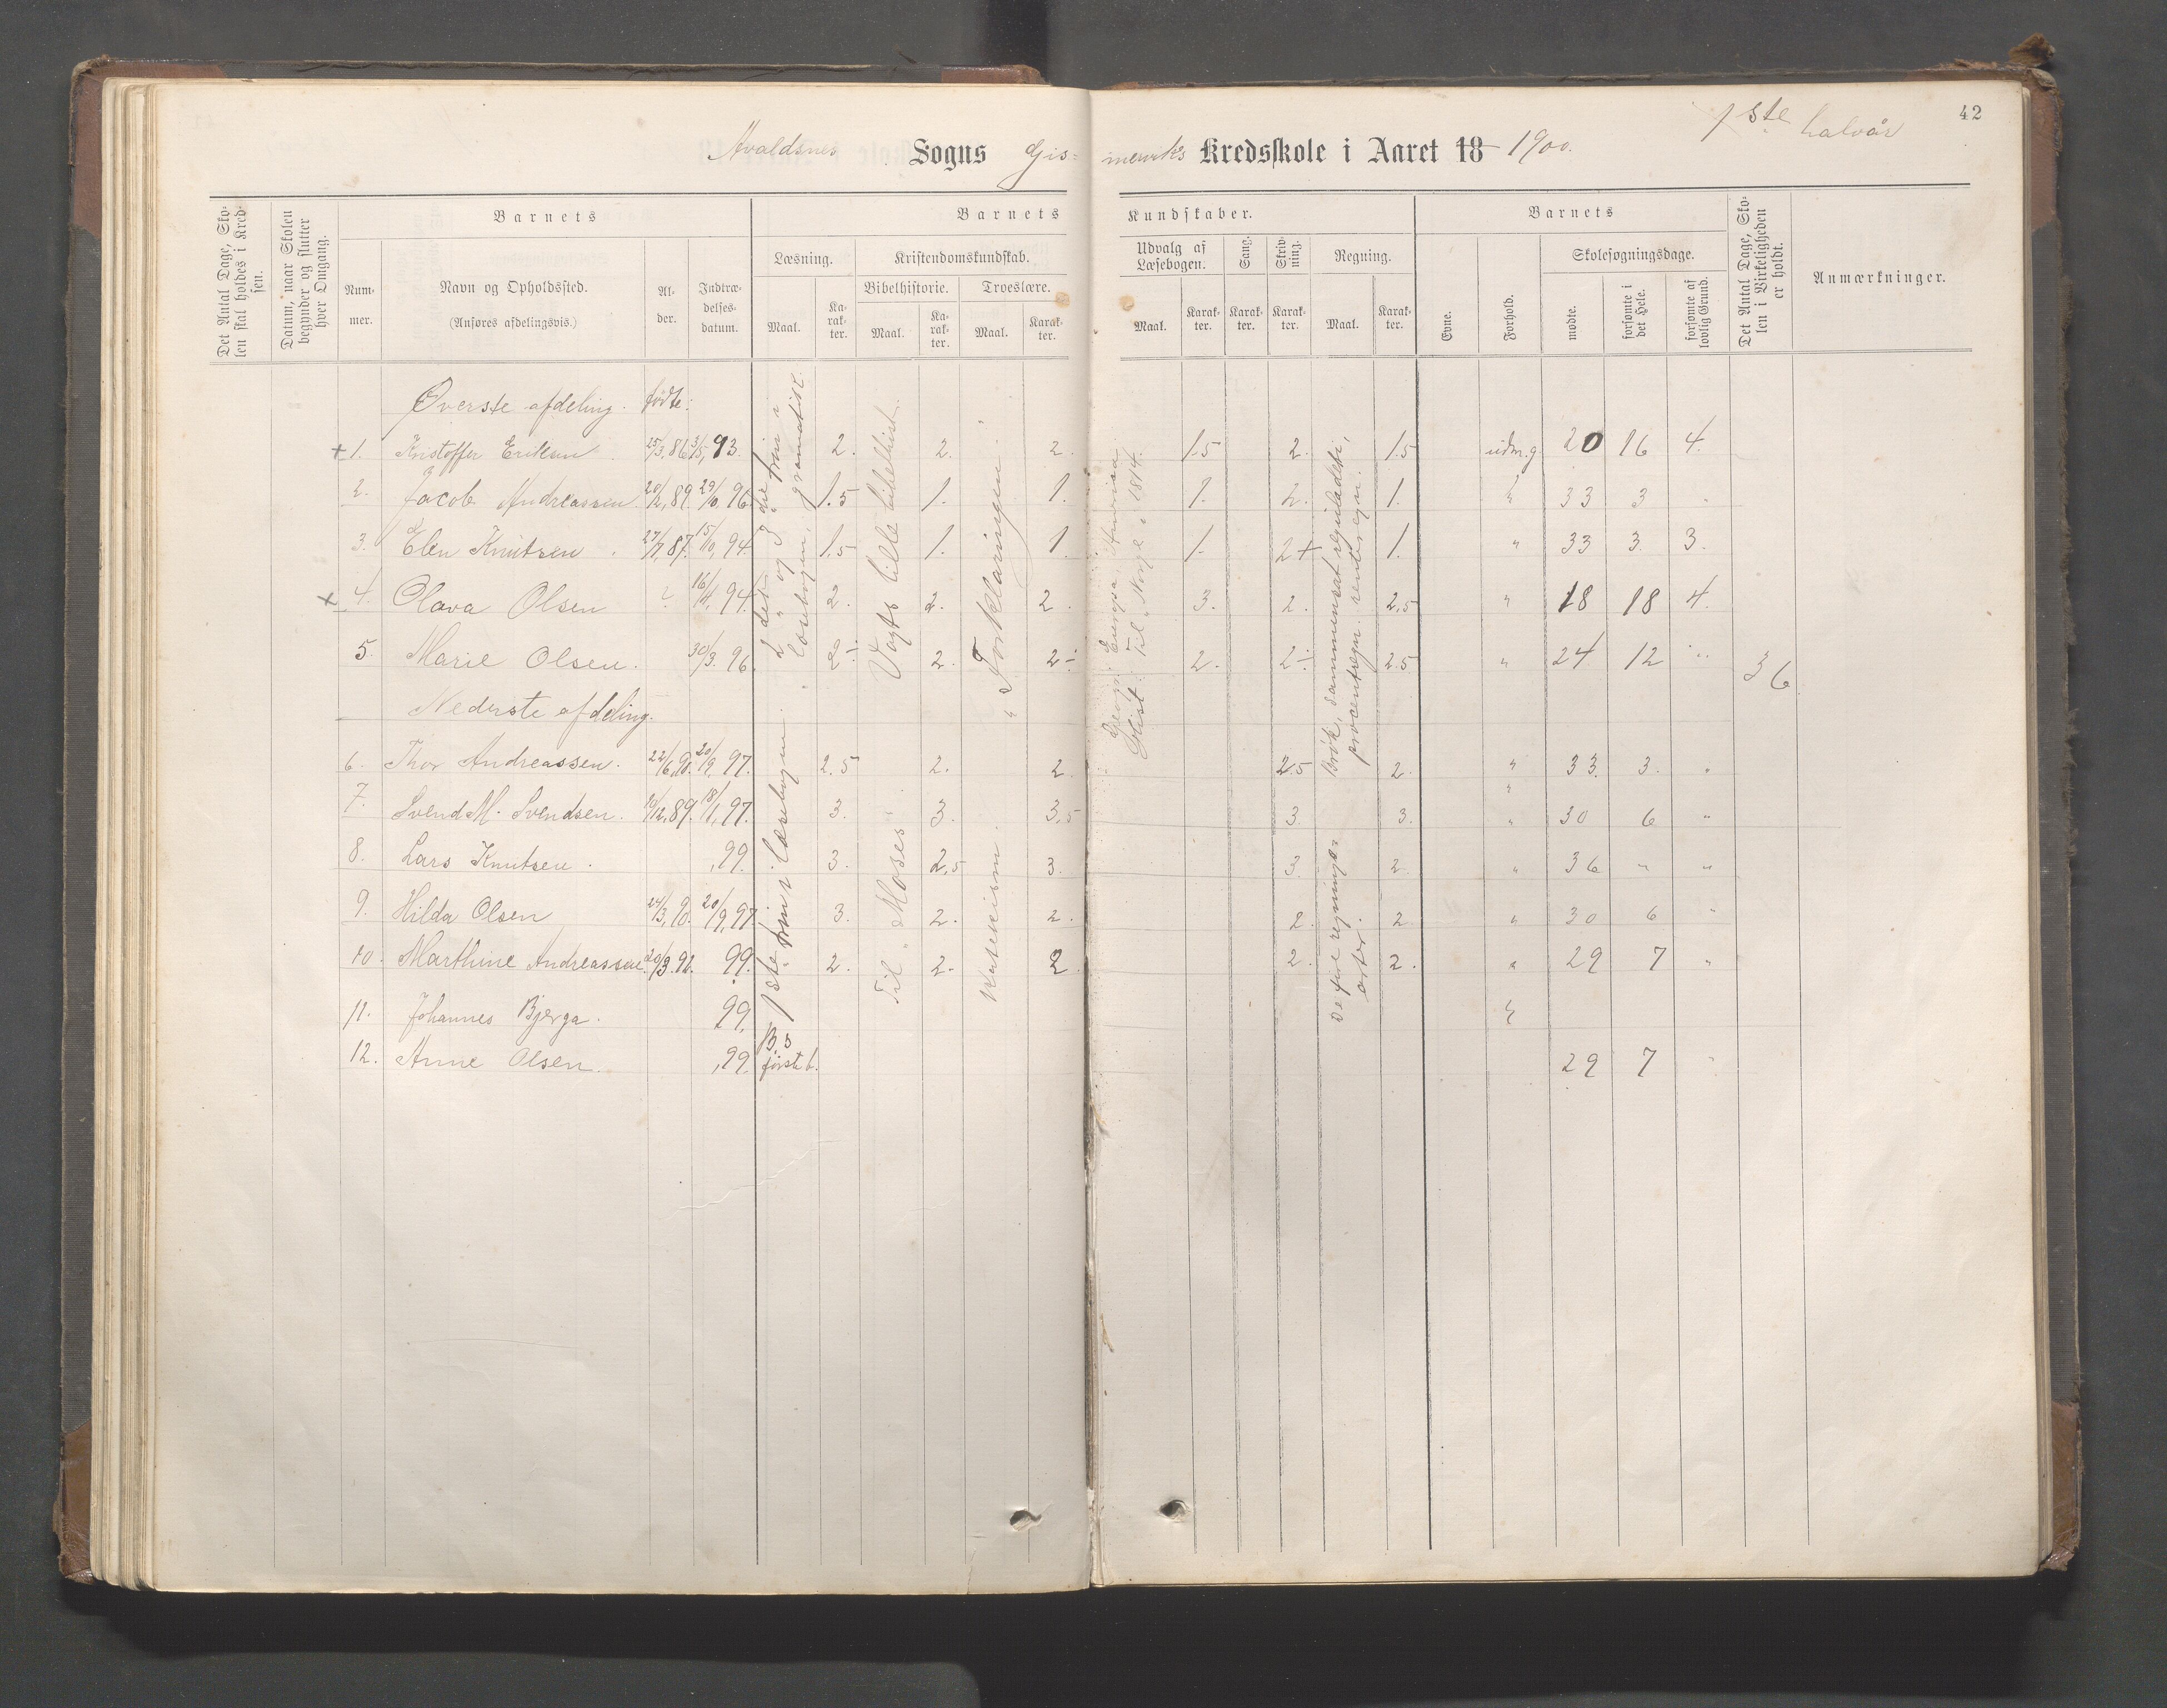 42
1ste halvår
Avaldsnes Sogns Gis= mervik's Kredsskole i Aaret 18 1900.
Det Antal Dage, Skolen skal holdes i Kredsen.
Datum, naar Skolen begynder og slutter hver Omgang.
Barnets
Nummer.
Navn og Opholdssted.
(Anføres afdelingsvis.)
Alder.
Indtrædelsesdatum.
Barnets Kundskaber.
Læsning.
Maal.
Karakter.
Kristendomskundskab.
Bibelhistorie.
Maal.
Karakter.
Troeslære.
Maal.
Karakter.
Udvalg af Læsebogen.
Maal.
Karakter.
Sang.
Karakter.
Skrivning.
Karakter.
Regning.
Maal.
Karakter.
Barnets
Evne.
Forhold.
Skolesøgningsdage.
mødte.
forsømte i det Hele.
forsømte af lovlig Grund.
Det Antal Dage, Skolen i Virkeligheden er holdt.
Anmærkninger.
Øverste afdeling. fødte:
+ 1. Kristoffer Eriksen 25/3, 86 3/5, 93. 2. 2. 2. 1.5 2. 1.5 udm.g 20 16 4.
2. Jacob Andreassen. 20/12, 89. 29/10, 96. 1.5 1. 1. 1. 2. 1. " 33 3 "
3. Elen Knutsen. 27/7, 87. 15/10, 94. 1.5 1. 1. 1. 2+ 1. " 33 3. 3.
+ 4. Olava Olsen ? 16/4, 94. 2. 2. 2. 3. 2. 2,5 " 18 18 4.
5. Marie Olsen. 30/3. 96. 2÷ 2. 2÷ 2. 2÷ 2.5 " 24 12 " 36
Nederste afdeling.
6. Thor Andreassen. 22/6, 90. 20/9, 97. 2,5 2. 2. 2.5 2. " 33. 3. "
7. Svend M. Svendsen. 19/12, 89. 18/1, 97. 3. 3. 3,5 3. 3. " 30 6 "
8. Lars Knutsen. ,99. 3. 2,5 3. 3. 2. " 36 " "
9. Hilda Olsen 24/3, 90. 20/9, 97. 3. 2. 2. 2. 2. " 30 6 "
10. Marthine Andreassen. 20/3. 92. 99. 2. 2. 2. 2. 2. " 29 7 "
11. Johannes Bjerga. 99. "
12. Anne Olsen. ,99. første b. 29 7 "
2det og 3die trin i
læsebogen, gramatik.
1ste trin i læsebogen.
Vogts lille bibelhist.
Til „Moses".
Forklaringen.
Katekism.
Geogr. Europa,
Hist. Til „Norge i 1814.
Brøk, sammensat reguladetri,
procentregn. rentesregn.
De fire regnings=
arter.